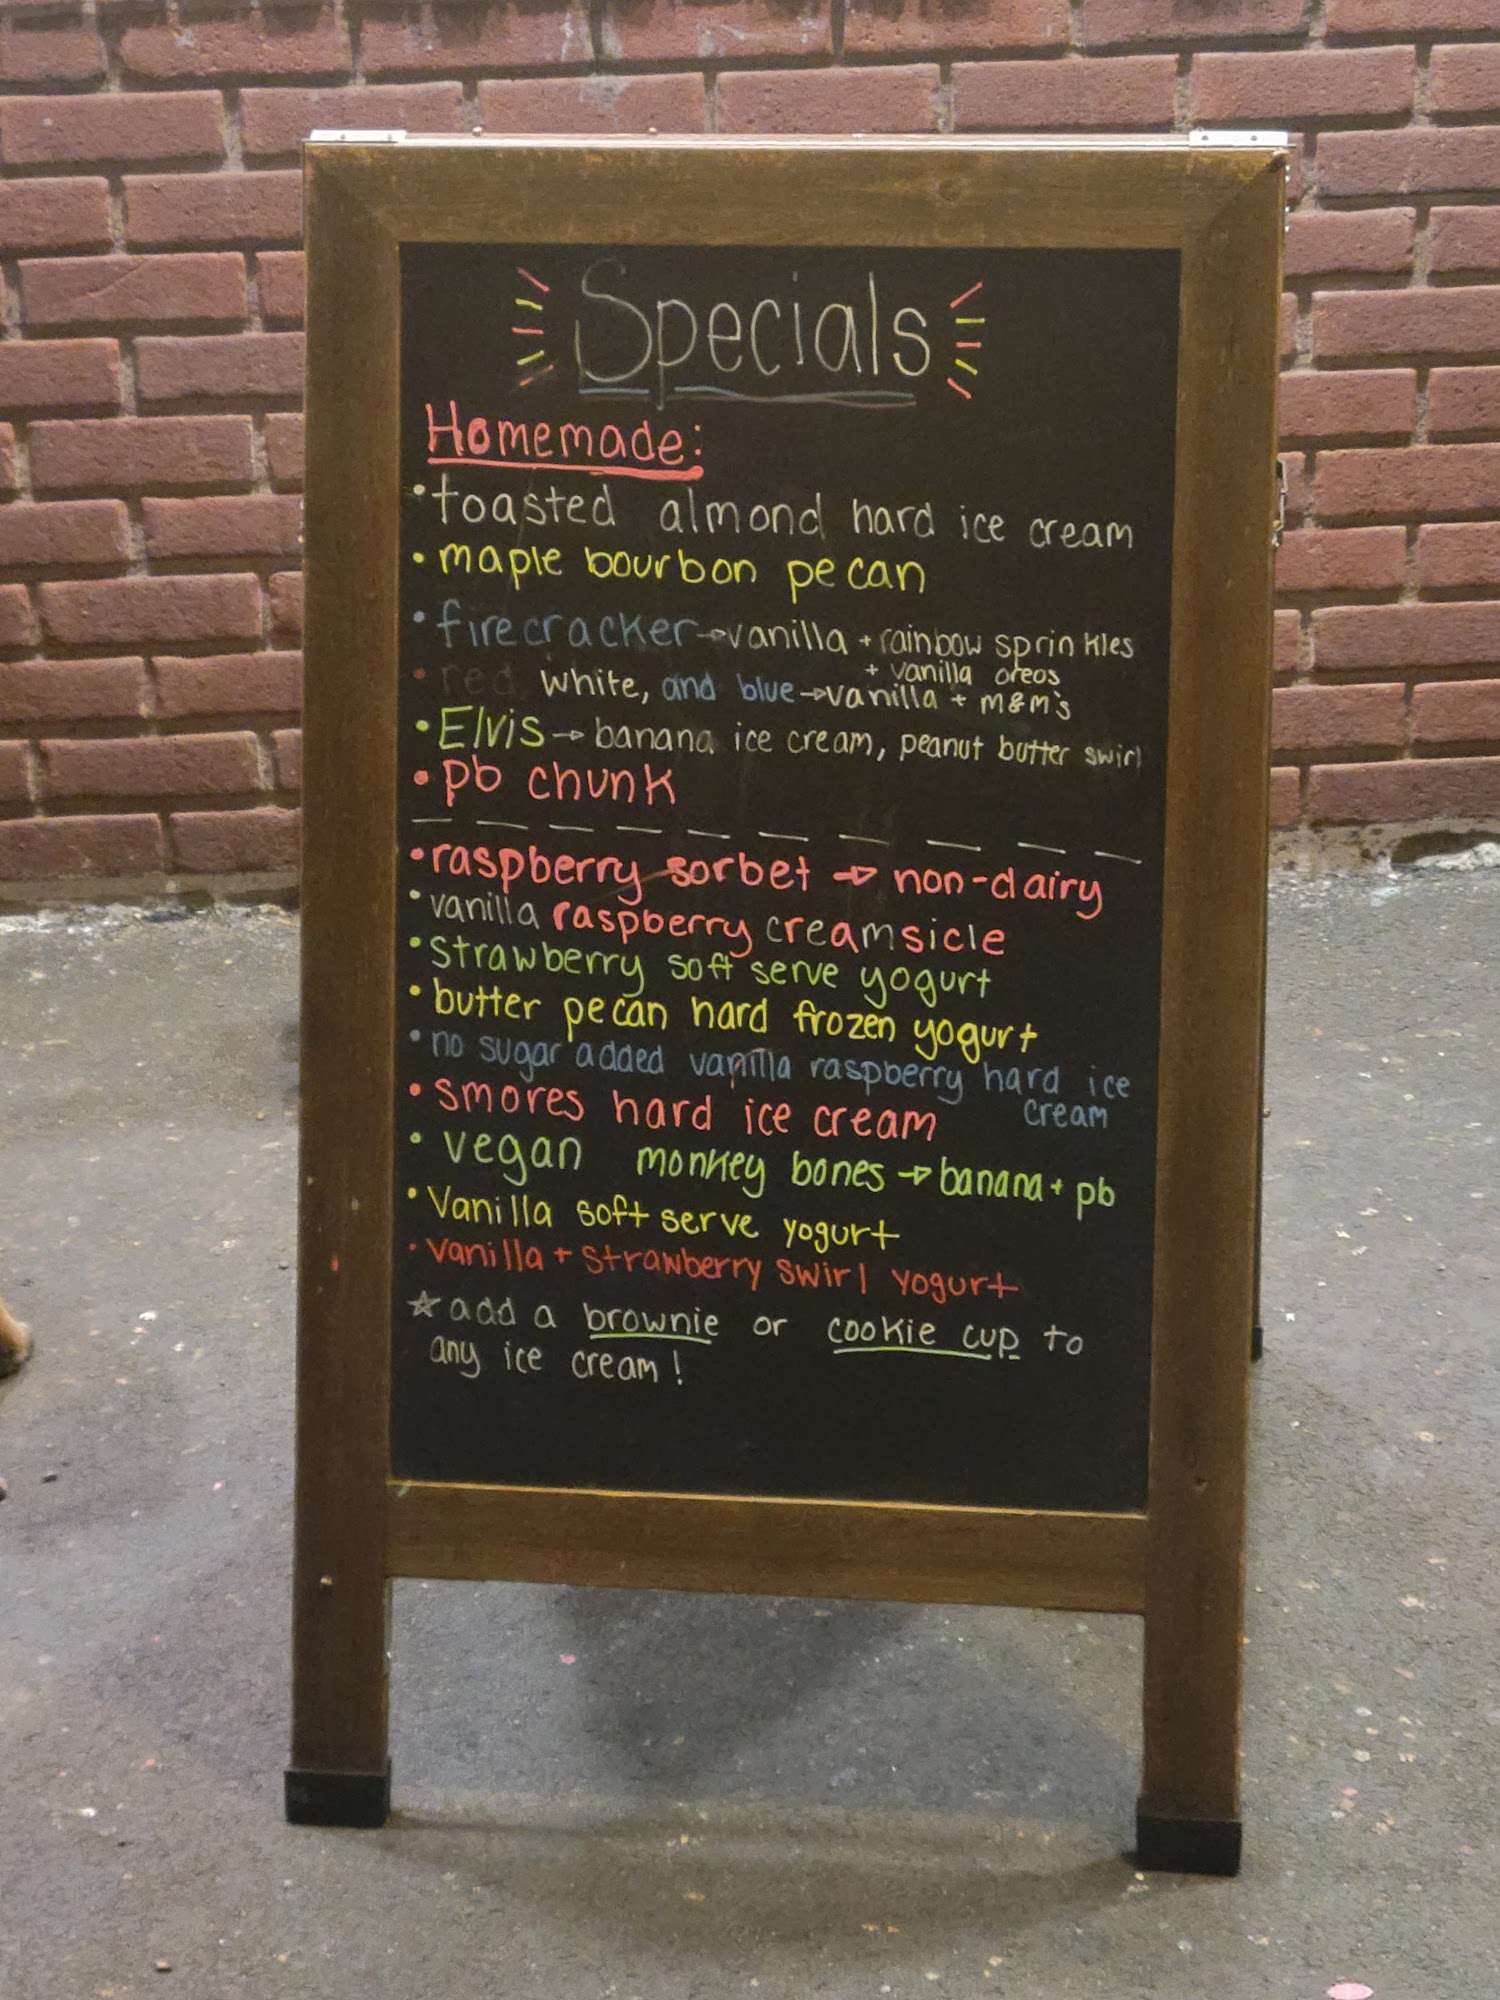 Specials
Homemade:
•toasted almond hard ice cream
•maple bourbon pecan
•firecracker→vanilla + rainbow sprinkles
+ vanilla oreos
•red, white, and blue→vanilla + m&m's
•Elvis→banana ice cream, peanut butter swirl
•pb chunk
•raspberry sorbet → non-dairy
•vanilla raspberry creamsicle
•strawberry soft serve yogurt
•butter pecan hard frozen yogurt
•no sugar added vanilla raspberry hard ice
cream
•smores hard ice cream
•vegan monkey bones→banana + pb
•Vanilla soft serve yogurt
•vanilla + strawberry swirl yogurt
☆add a brownie or cookie cup to
any ice cream!